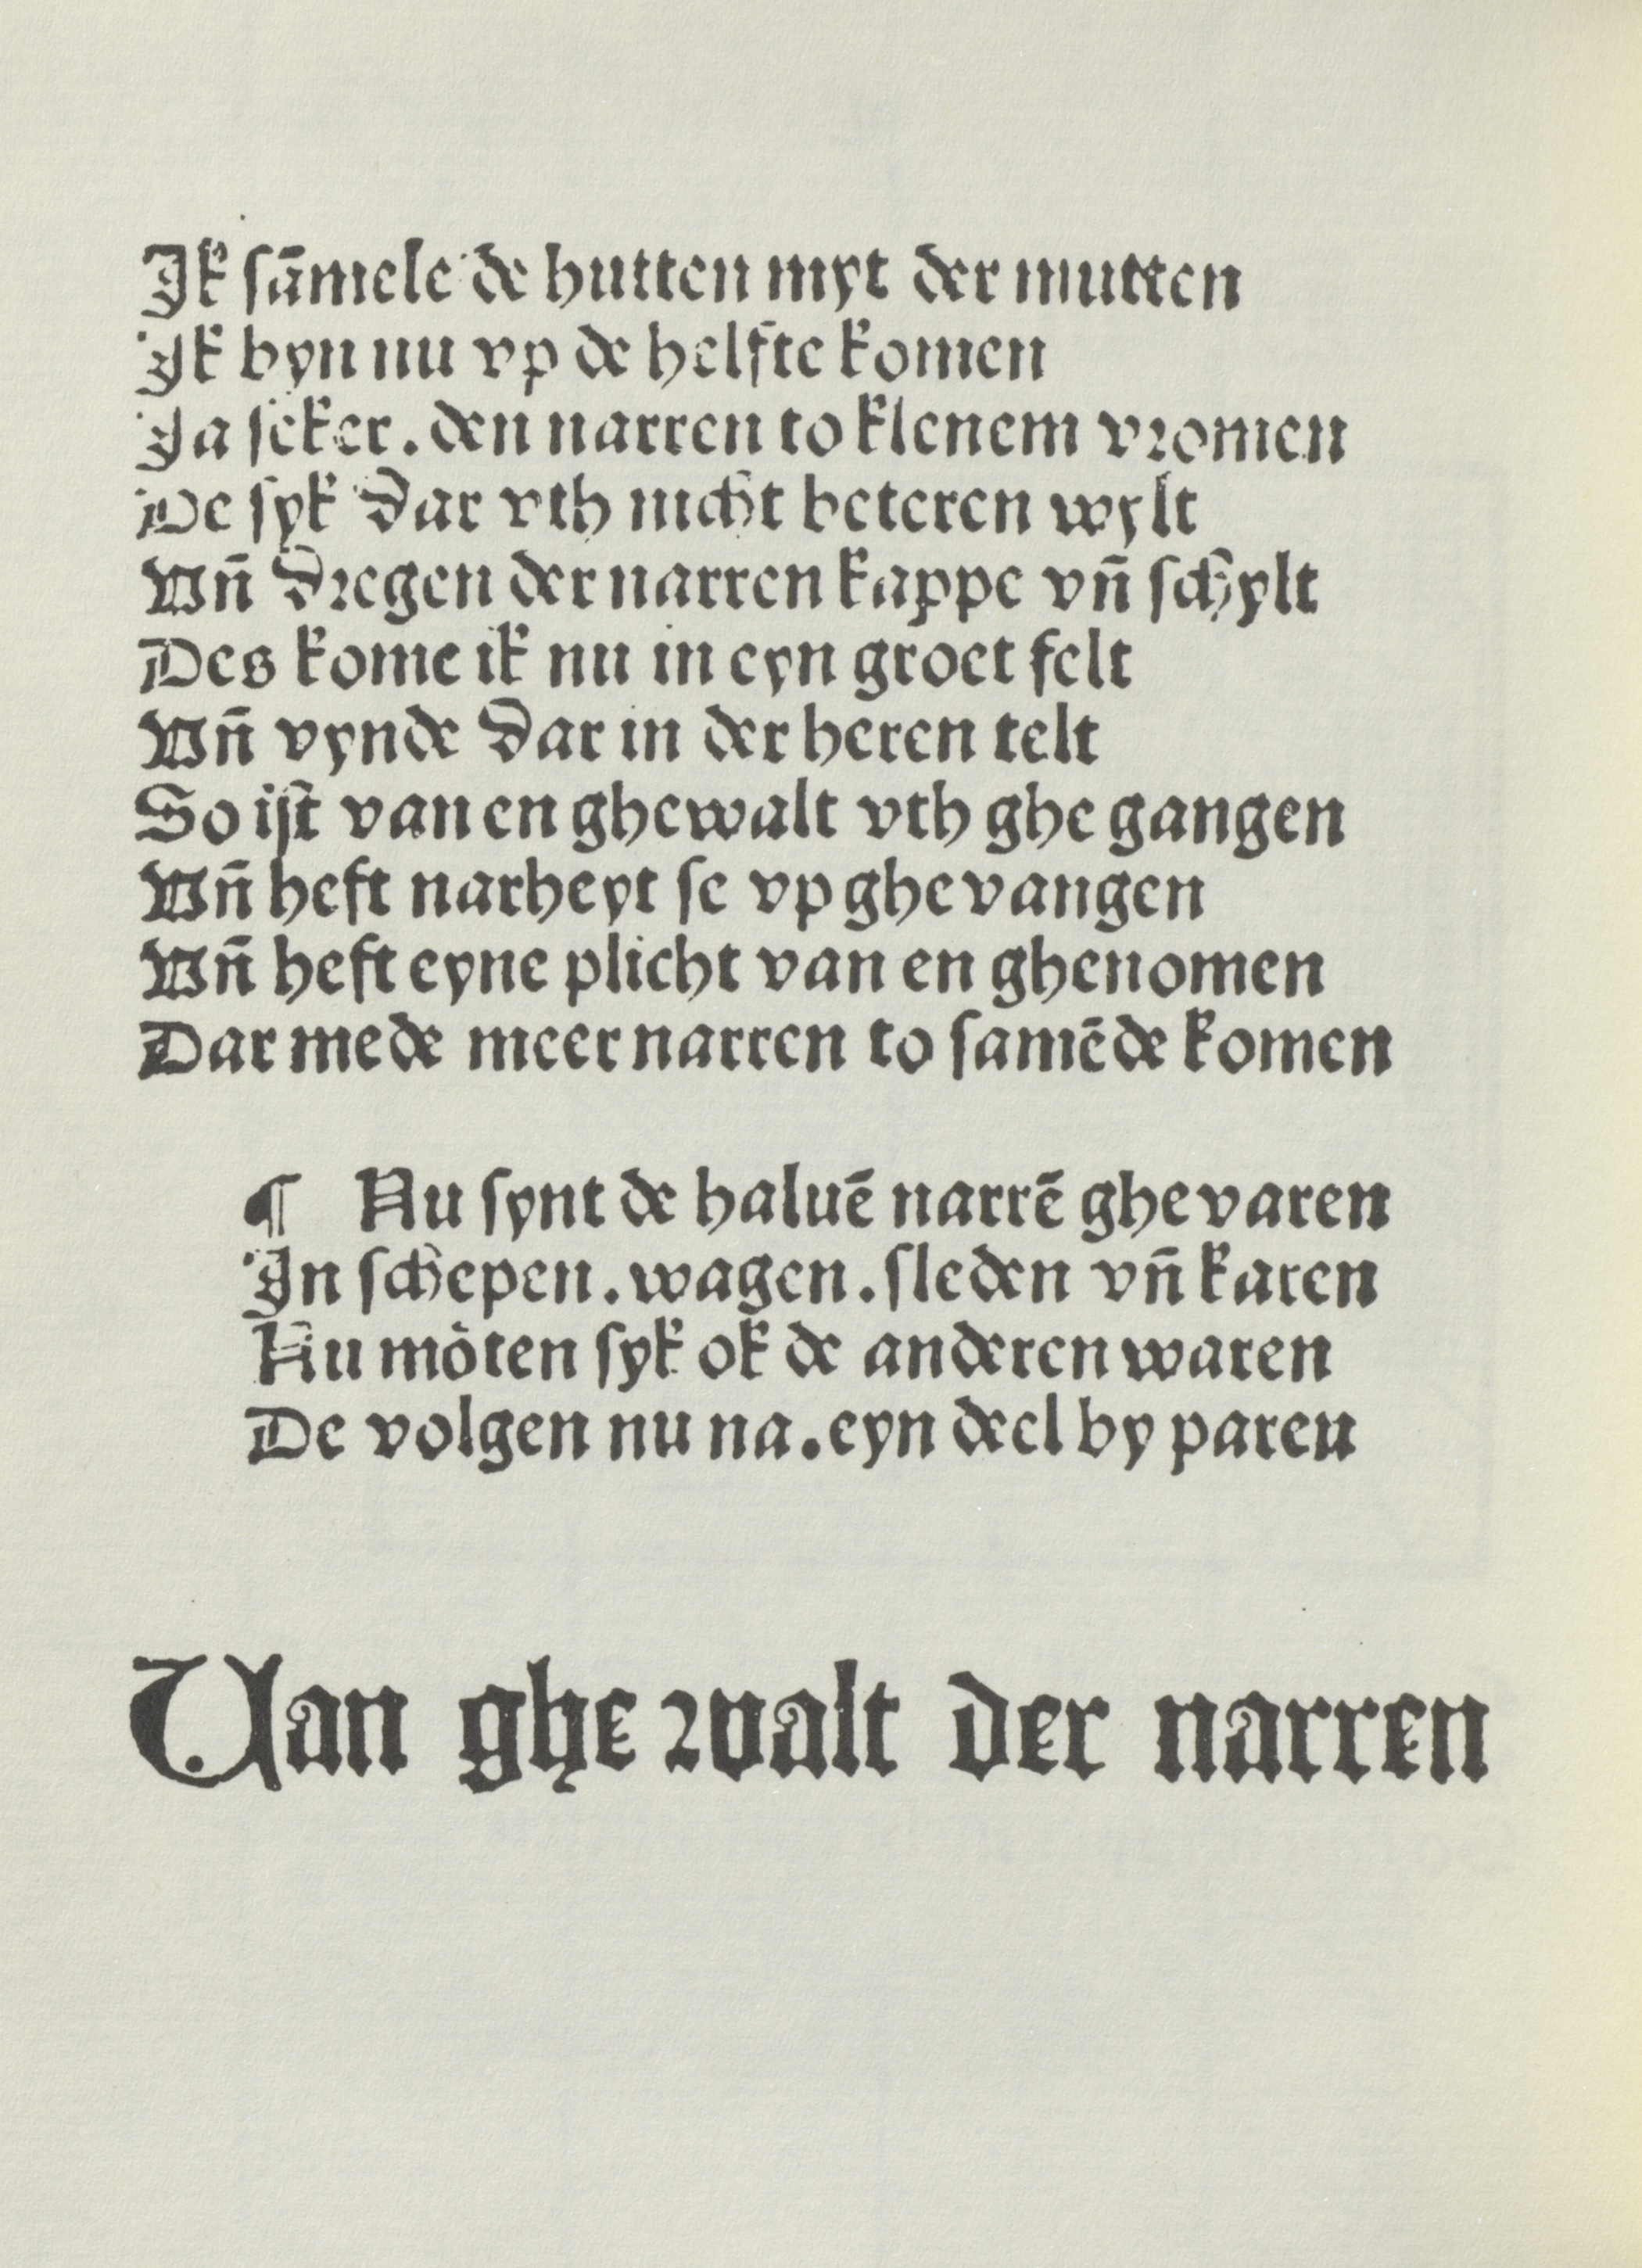 Ik ſāmele de hutten myt der mutten
Ik byn nu vp de helfte komen
Ja ſeker. den narren to klenem vꝛomen
De ſyk dar vth nicht beteren wylt
Vn̄ dꝛegen der narren kappe vn̄ ſchylt
Des kome ik nu in eyn groet felt
Vn̄ vynde dar in der heren telt
So iſt van en ghewalt vth ghe gangen
Vn̄ heft narheyt ſe vp ghevangen
Vn̄ heft eyne plicht van en ghenomen
Dar mede meer narren to ſamēde komen
¶ Nu ſynt de haluē narrē ghevaren
In ſchepen. wagen. ſleden vn̄ karen
Nu moͤten ſyk ok de anderen waren
De volgen nu na. eyn deel by paren
Uan ghewalt der narren